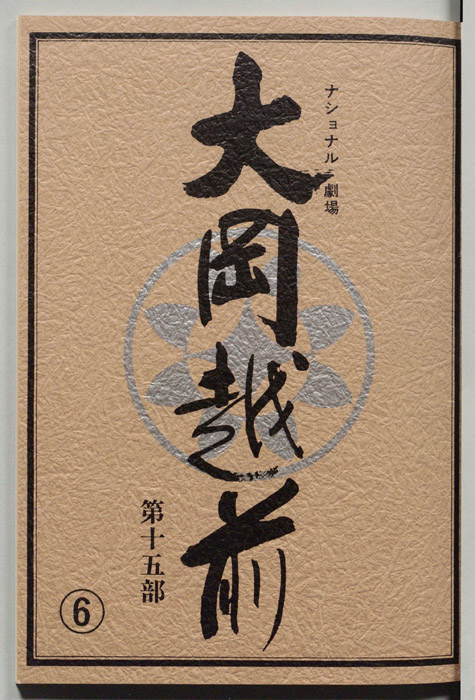 ナショナル劇場
大岡越前
第十五部
6